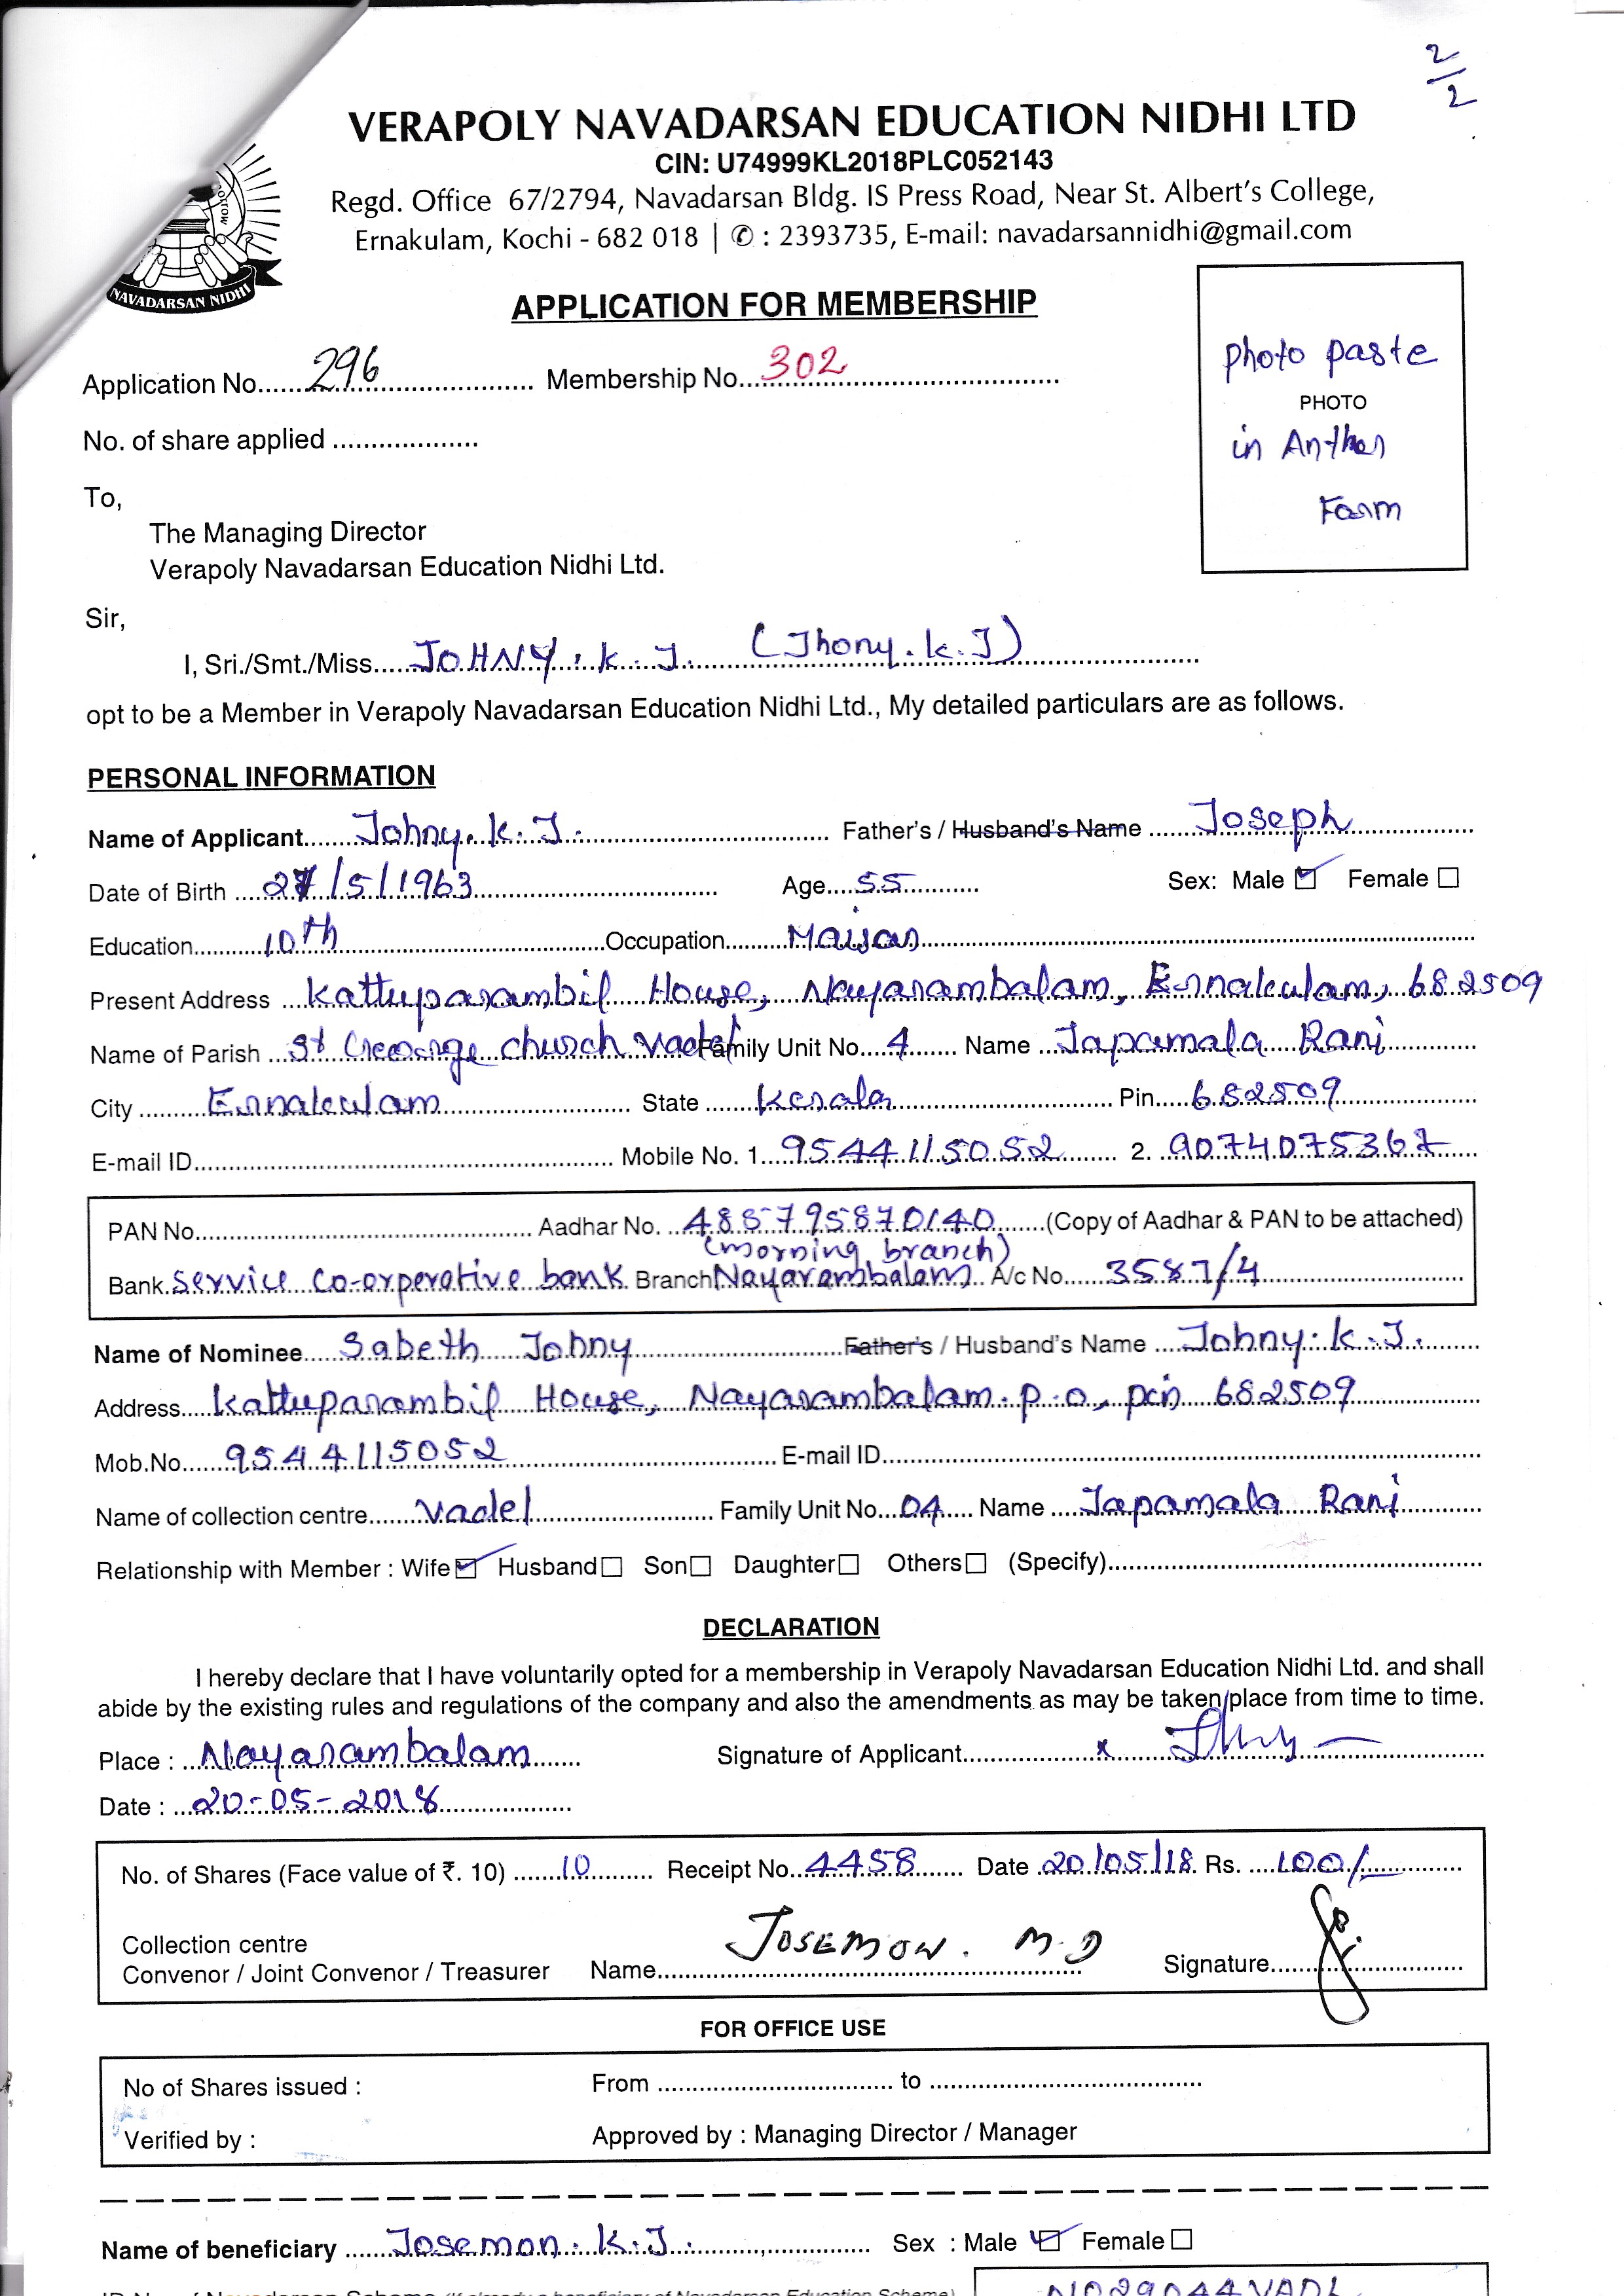 2/2
VERAPOLY NAVADARSAN EDUCATION NIDHI LTD
CIN: U74999KL2018PLC052143
Regd. Office 67/2794, Navadarsan Bldg. IS Press Road, Near St. Albert's College,
Ernakulam, Kochi - 682 018 | ✆ : 2393735, E-mail: navadarsannidhi@gmail.com
NAVADARSAN NIDHI
APPLICATION FOR MEMBERSHIP
Application No. 296 Membership No. 302
photo paste
PHOTO
in Anther
Form
No. of share applied
To,
The Managing Director
Verapoly Navadarsan Education Nidhi Ltd.
Sir,
I, Sri./Smt./Miss. JOHNY. K. J. (Jhony. K. J)
opt to be a Member in Verapoly Navadarsan Education Nidhi Ltd., My detailed particulars are as follows.
PERSONAL INFORMATION
Name of Applicant Johny. K. J. Father's / Husband's Name Joseph
Date of Birth 27/5/1963 Age 55 Sex: Male ☑ Female ☐
Education 10th Occupation
Present Address Kattuparambil House, Nayarambalam, Ernakulam, 682509
Name of Parish St church Vadel Family Unit No. 4 Name Japamala Rani
City Ernakulam State Kerala Pin 682509
E-mail ID Mobile No. 1. 9544115052 2. 9074075367
PAN No. Aadhar No. 488795870140 (Copy of Aadhar & PAN to be attached)
(morning branch)
Bank Service Co-orperative bank Branch Nayarambalam A/c No. 3587/4
Name of Nominee Sabeth Johny Father's / Husband's Name Johny. K. J.
Address Kattuparambil House, Nayarambalam. p. o, pin 682509
Mob.No. 9544115052 E-mail ID
Name of collection centre Vadel Family Unit No. 04 Name Japamala Rani
Relationship with Member : Wife ☑ Husband ☐ Son ☐ Daughter ☐ Others ☐ (Specify)
DECLARATION
I hereby declare that I have voluntarily opted for a membership in Verapoly Navadarsan Education Nidhi Ltd. and shall
abide by the existing rules and regulations of the company and also the amendments as may be taken/place from time to time.
Place : Nayarambalam Signature of Applicant x
Date : 20-05-2018
No. of Shares (Face value of ₹. 10) 10 Receipt No. 4458 Date 20/05/18 Rs. 100/-
Collection centre
Convenor / Joint Convenor / Treasurer Name JOSEMON. M.D Signature
FOR OFFICE USE
No of Shares issued : From to
Verified by : Approved by : Managing Director / Manager
Name of beneficiary Josemon. K. J. Sex : Male ☑ Female ☐
N029044VADL